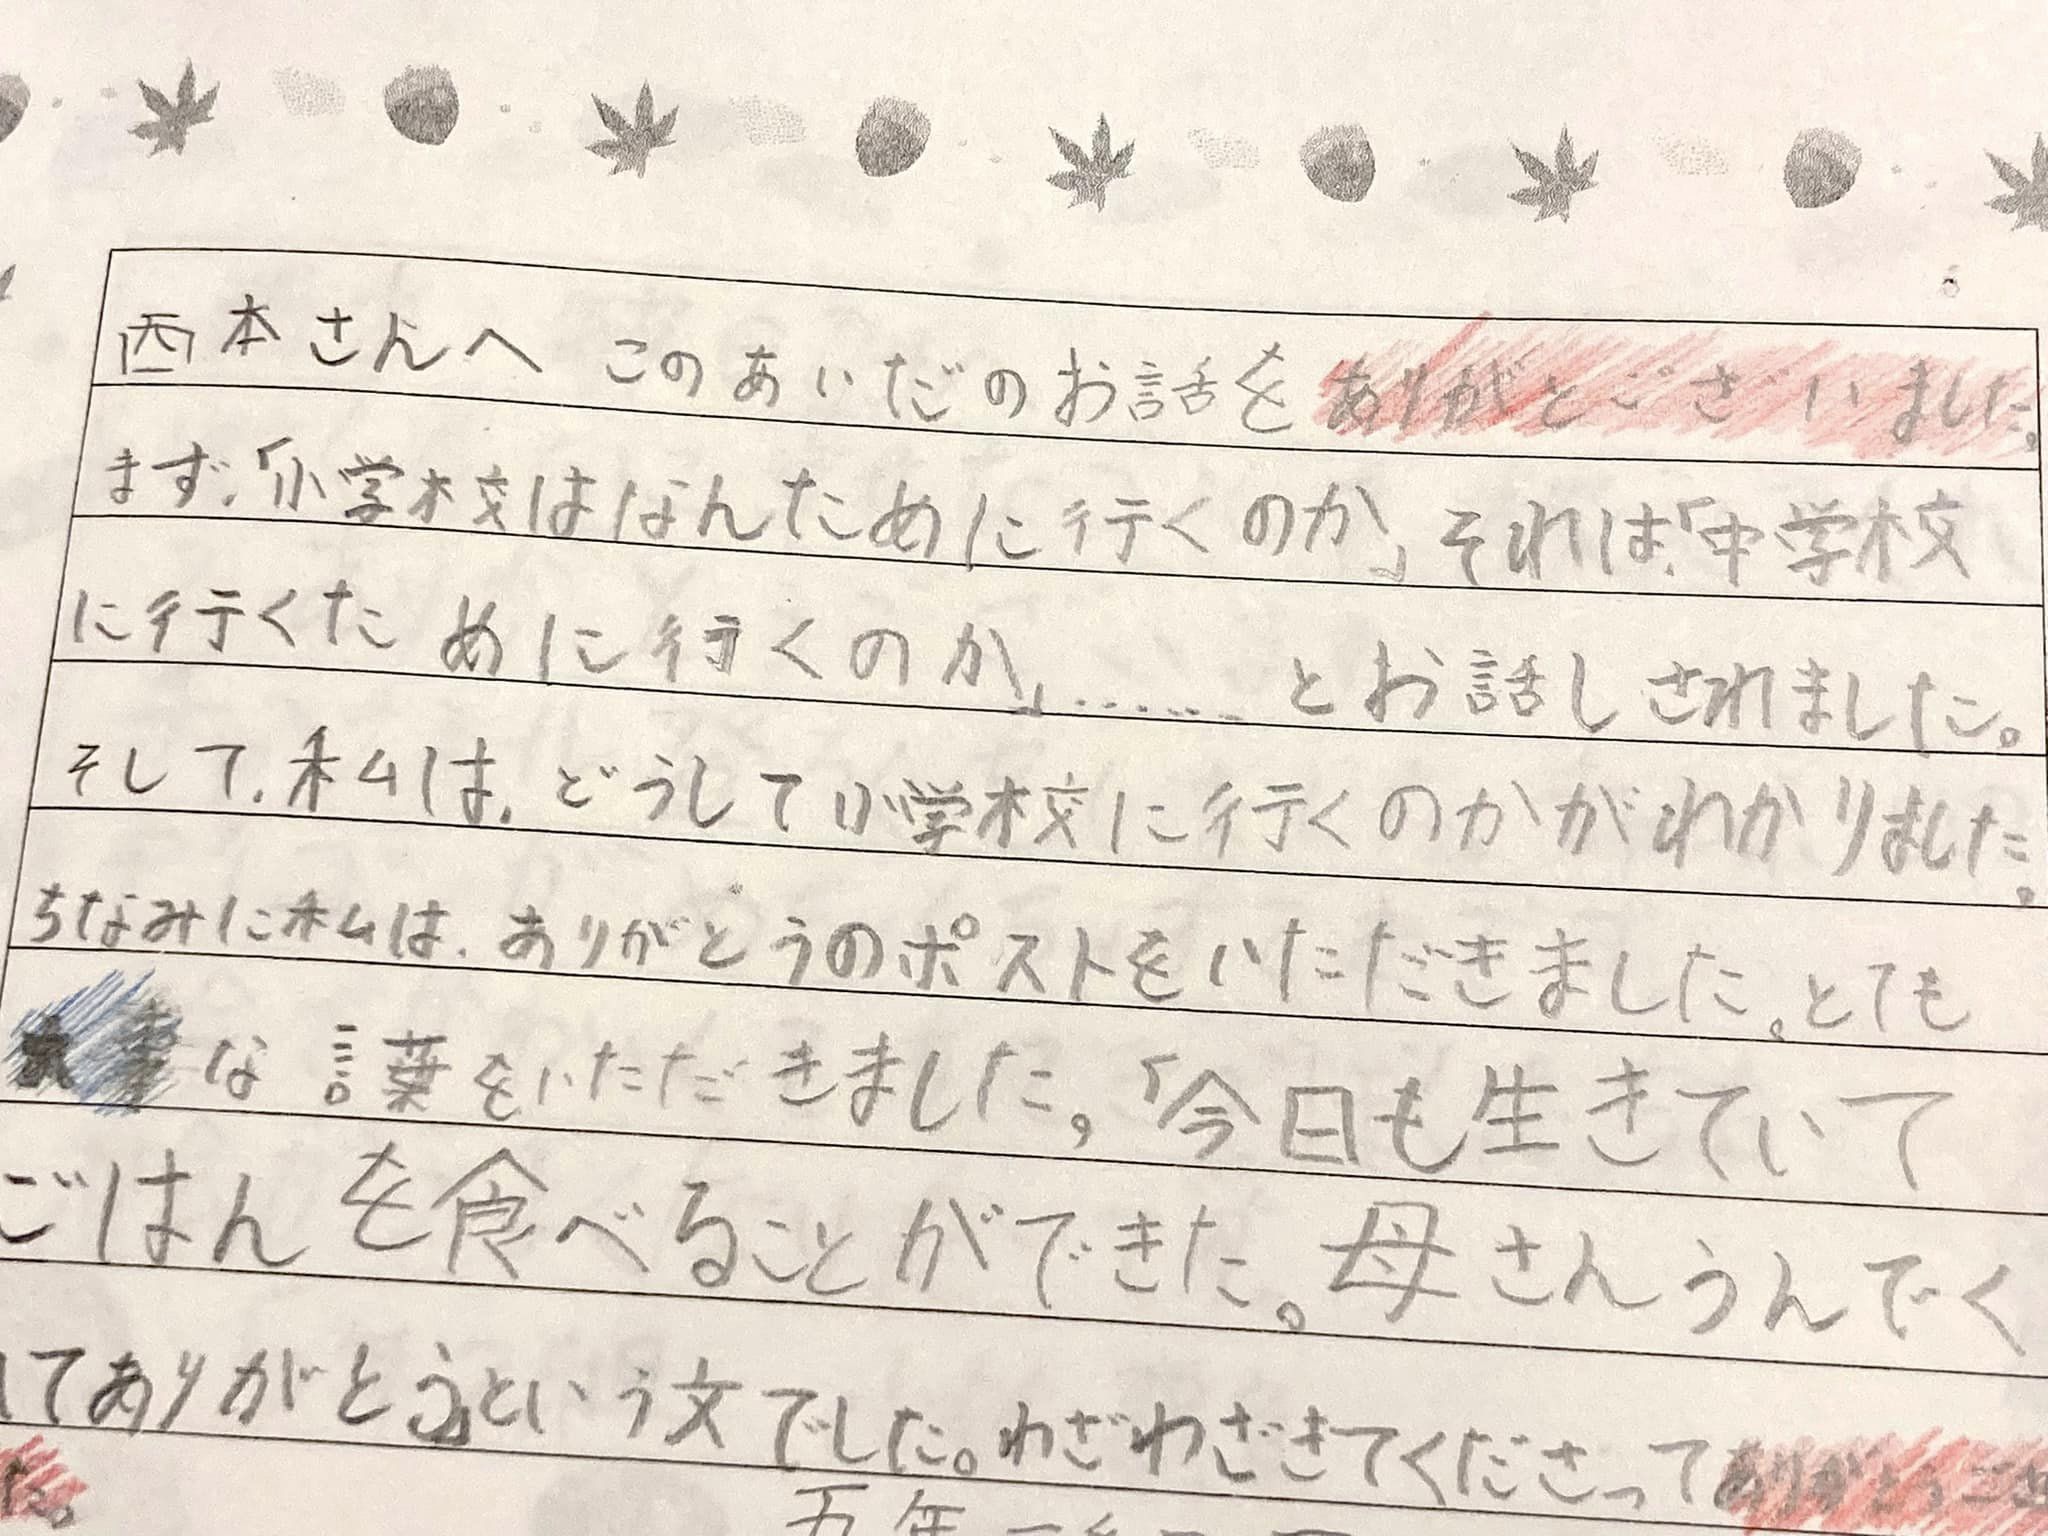 西本さんへ このあいだのお話をありがとございました。
まず、「小学校はなんために行くのか」それは、「中学校
に行くために行くのか」……とお話しされました。
そして、私は、どうして小学校に行くのかがわかりました。
ちなみに私は、ありがとうのポストをいただきました。とても
な言葉をいただきました。「今日も生きていて
ごはんを食べることができた。母さんうんでく
てありがとう」という文でした。わざわざきてくださってありがとうござ
た。
五年